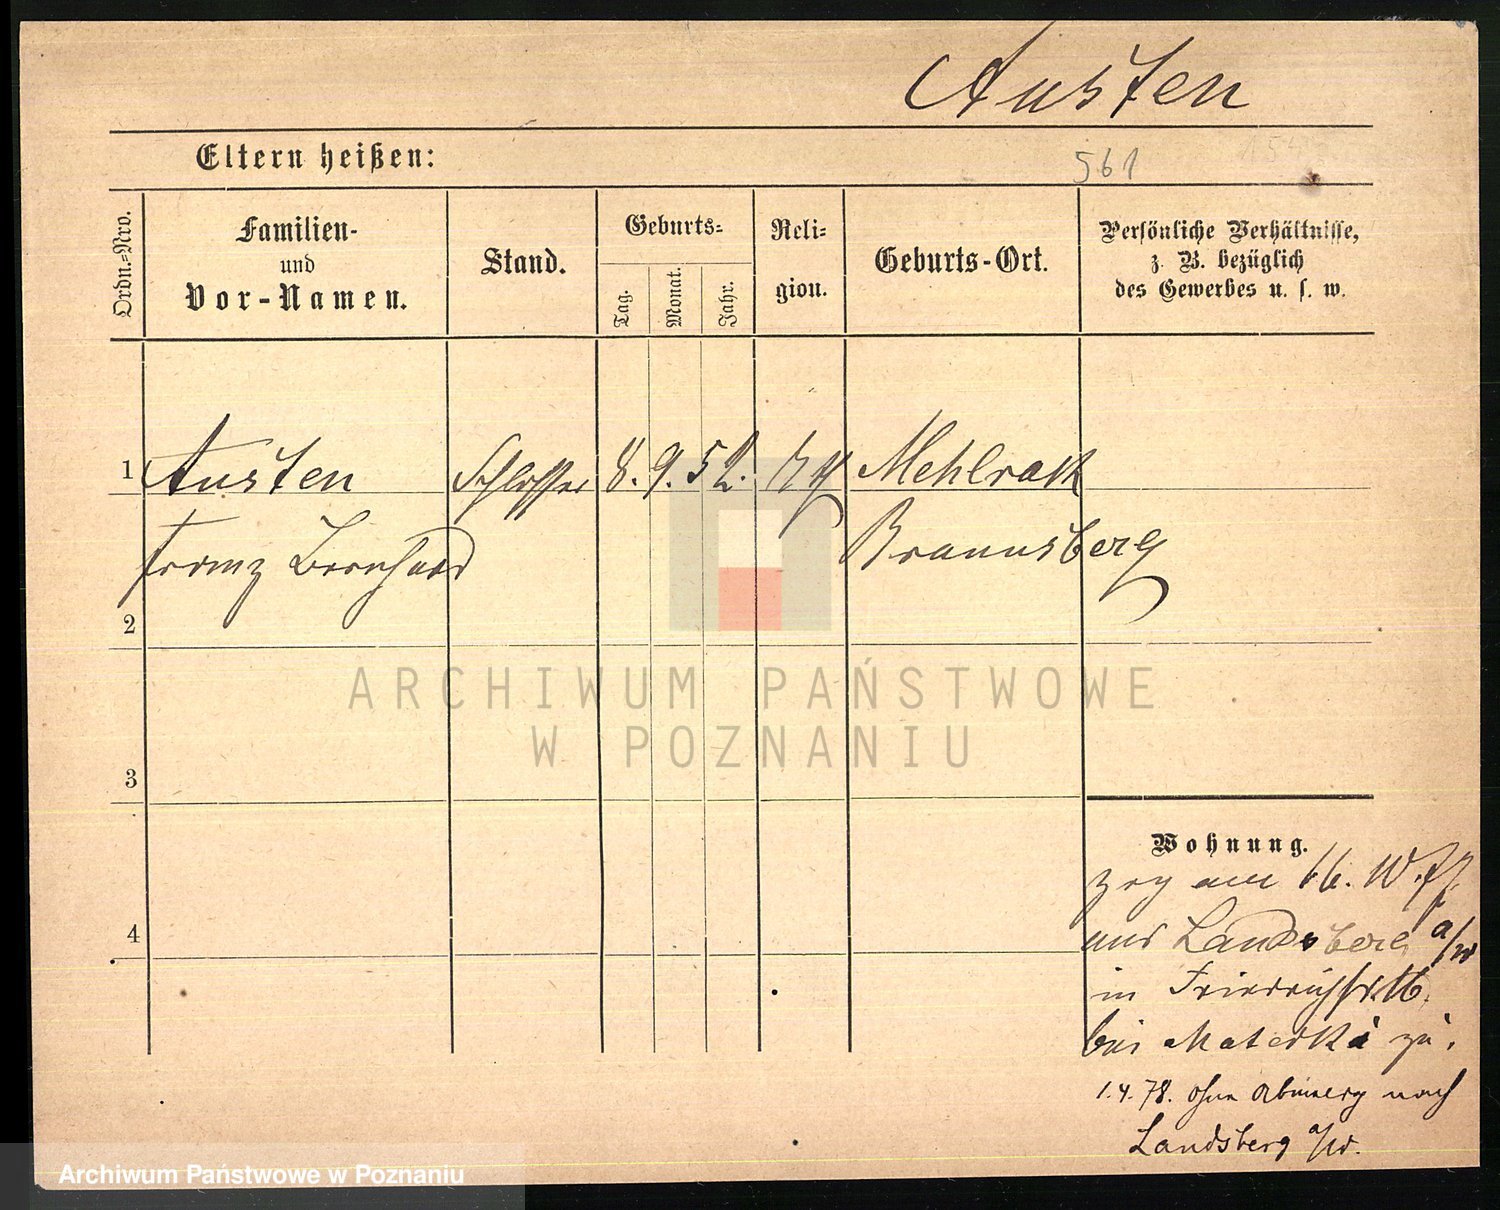 Austen
Eltern heißen:
561
Ordn.-Nro.
Familien-
und
Vor-Namen.
Stand.
Geburts-
Tag.
Monat.
Jahr.
Reli-
gion.
Geburts-Ort.
Persönliche Verhältnisse,
z. B. bezüglich
des Gewerbes u. s. w.
1 Austen Schlosser 8. 9. 52. Mehlsack
Franz Bernhard Braunsberg
2
3
4
Wohnung.
zog am 16.
aus Landsberg a/W
in Friedrichstr. 16.
bei zu.
1.4.78. ohne Abmeldg nach
Landsberg a/W.
ARCHIWUM PAŃSTWOWE
W POZNANIU
Archiwum Państwowe w Poznaniu